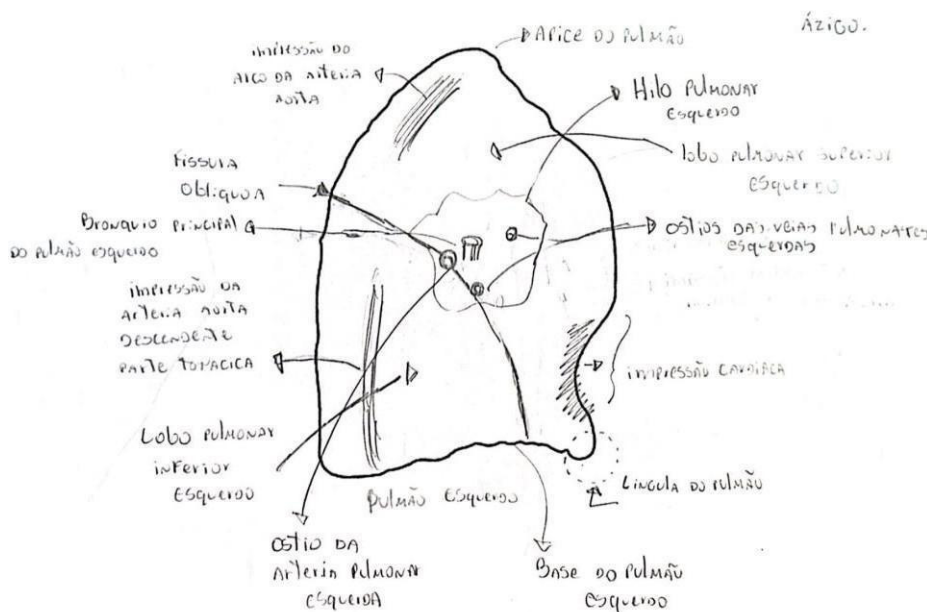 ÁZIGO.
ÁPICE DO PULMÃO
IMPRESSÃO DO
ARCO DA ARTERIA
AORTA
HILO PULMONAR
ESQUERDO
LOBO PULMONAR SUPERIOR
ESQUERDO
FISSURA
OBLIQUOA
BRONQUIO PRINCIPAL
DO PULMÃO ESQUERDO
OSTIOS DAS VEIAS PULMONARES
ESQUERDAS
IMPRESSÃO DA
ARTERIA AORTA
DESCENDENTE
PARTE TORACICA
IMPRESSÃO CARDÍACA
LOBO PULMONAR
INFERIOR
ESQUERDO
PULMÃO ESQUERDO
LINGULA DO PULMÃO
OSTIO DA
ARTERIA PULMONAR
ESQUERDA
BASE DO PULMÃO
ESQUERDO